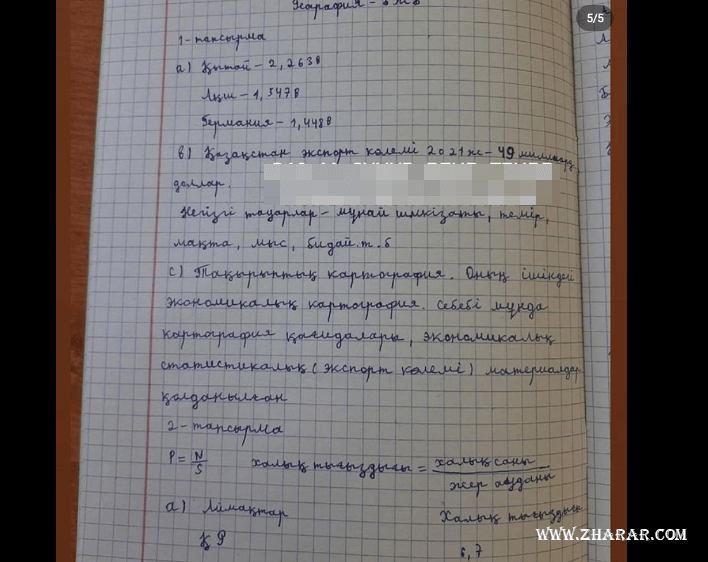 География - 8
5/5
1-тапсырма
а) Қытай - 2,263 В
Ақш - 1,547 В
Германия - 1,448 В
в) Қазақстан экспорт көлемі 2021 ж - 49 миллиард
доллар.
Негізгі тауарлар - мұнай шикізаты, темір,
мақта, мыс, бидай.т.б
с) Тақырыптық картография. Оның ішіндегі
экономикалық картография. Себебі мұнда
картография қағидалары, экономикалық
статистикалық (экспорт көлемі) материалдар
қолданылған
2-тапсырма
P = N/S халық тығыздығы = халық саны/жер ауданы
а) Аймақтар Халық тығыздығы
ҚР 6,7
WWW.ZHARAR.COM